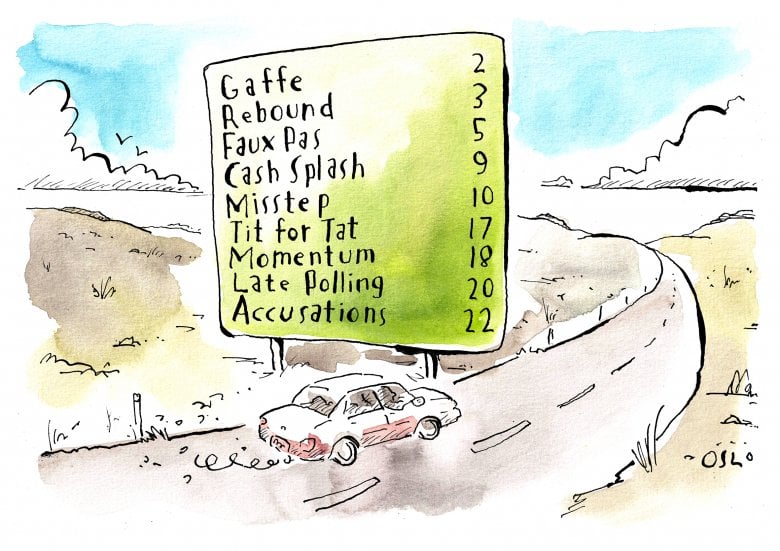 Gaffe 2
Rebound 3
Faux Pas 5
Cash Splash 9
Misstep 10
Tit for Tat 17
Momentum 18
Late Polling 20
Accusations 22
OSLO